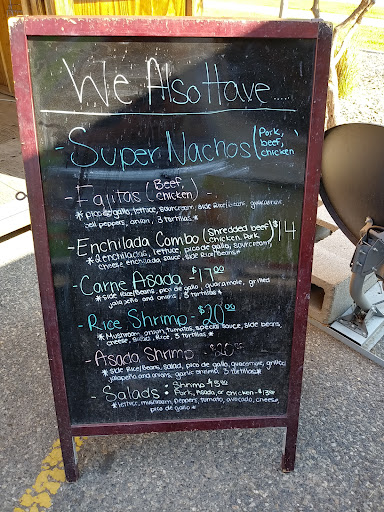 We Also Have.....
- Super Nachos (Pork, beef, chicken)
- Fajitas (Beef, chicken) -
* pico de gallo, lettuce, sourcream, side Rice/Beans, guacamole,
bell peppers, onion, 3 tortillas *
- Enchilada Combo (Shredded beef/ chicken, Pork $14
* 2 enchiladas, lettuce, pico de gallo, sourcream,
cheese, enchilada sauce, side Rice/Beans *
- Carne Asada - $17.00
* side Rice/Beans, pico de gallo, guacamole, grilled
jalapeño and onions, 3 tortillas *
- Rice Shrimp - $20.00
* Mushroom, onion, tomatos, special sauce, side beans,
cheese, Rice, 3 tortillas *
- Asada Shrimp -
* side Rice/Beans, salad, pico de gallo, guacamole, grilled
jalapeño and onions, 3 tortillas *
- Salads: Shrimp
Pork, Asada, or chicken -
* lettuce, mushroom, peppers, tomato, avocado, cheese,
pico de gallo *